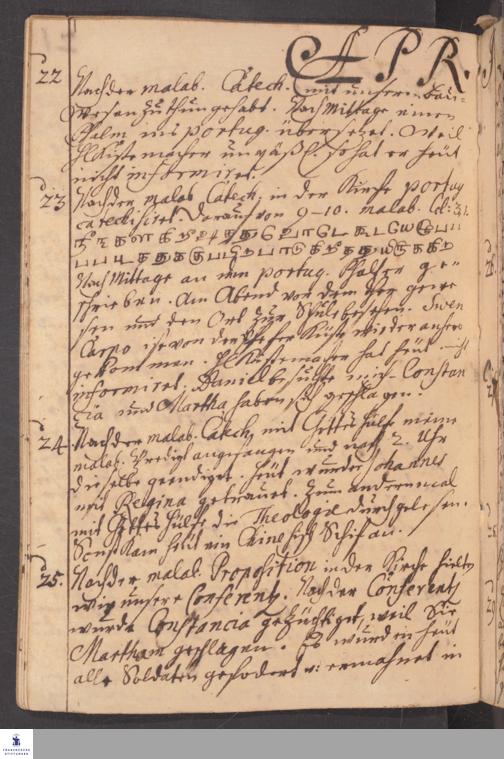 APR.
22 Nach der malab. Catech. mit unserm Bau-
Wesen zu thun gehabt. Nach Mittage einen
Psalm ins portug. übersetzt. Weil
H. Kistemacher unpäßl. so hat er heut
nicht informiret.
23 Nach der malab. Catech. in der Kirche portug
catechisiret. Darauf von 9-10. malab.
Nach Mittage an dem portug. Psalter ge-
schrieben. Am Abend vor dem Thor gewe
sen und den Ort zur Schule besehen. Swen
Carpo ist von der Küste wieder anhero
gekommen. H. Kistemacher hat heut nicht
informiret. Daniel besuchte mich. Constan
zia und Martha haben sich geschlagen.
24. Nach der malab. Catech. mit Gottes Hülfe meine
malab. Predigt angefangen und nach 2. Uhr
dieselbe geendiget. Heut wurde Johannes
mit Regina getrauet. Zum andernmal
mit Gottes Hülfe die Theologie durchgelesen.
Sonst kam heut ein Schif an.
25. Nach der malab. Proposition in der Kirche hielten
wir unsere Conferentz. Nach der Conferentz
wurde Constancia gezüchtiget, weil Sie
Martham geschlagen. Es wurden heut
alle Soldaten gefodert u. ermahnet in
FRANCKESCHE
STIFTUNGEN